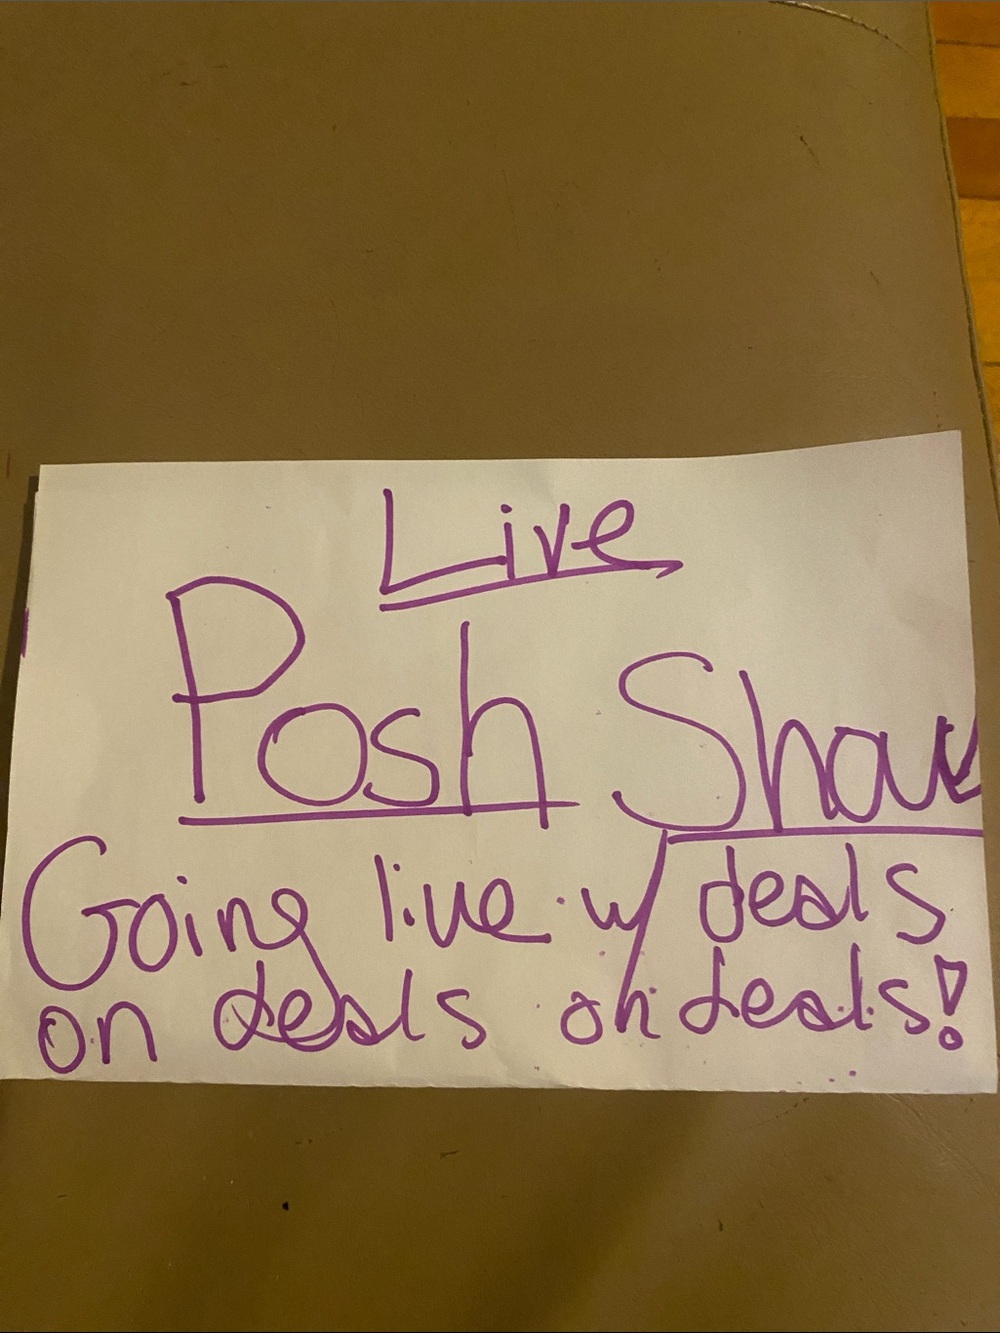 Live
Posh Show
Going live w/ deals
on deals on deals!